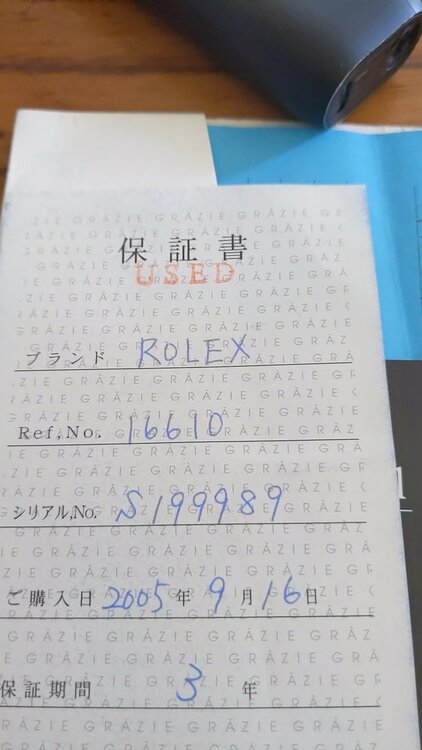 保証書
USED
ブランド ROLEX
Ref,No. 16610
シリアル,No. S199989
ご購入日 2005年 9月 16日
保証期間 3 年
GRÀZIE GRÀZIE GRÀZIE GRÀZIE